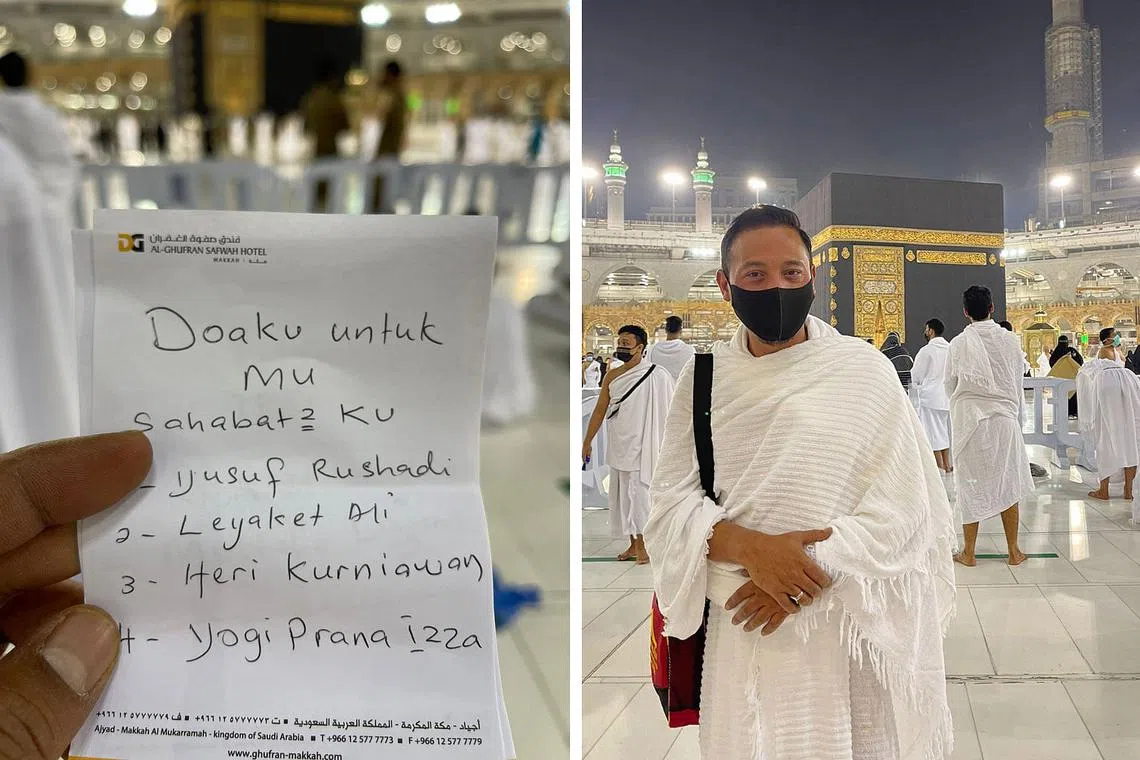 فندق صفوة الغفران
AL-GHUFRAN SAFWAH HOTEL
MAKKAH · مكة
Doaku untuk
mu
Sahabat2 ku
- Yusuf Rushadi
2- Leyaket Ali
3- Heri Kurniawan
4- Yogi Prana Izza
أجياد - مكة المكرمة - المملكة العربية السعودية ■ ت ٩٦٦١٢٥٧٧٧٧٧٣+ ■ ف ٩٦٦١٢٥٧٧٧٧٧٩+
Ajyad - Makkah Al Mukarramah - kingdom of Saudi Arabia ■ T +966 12 577 7773 ■ F +966 12 577 7779
www.ghufran-makkah.com